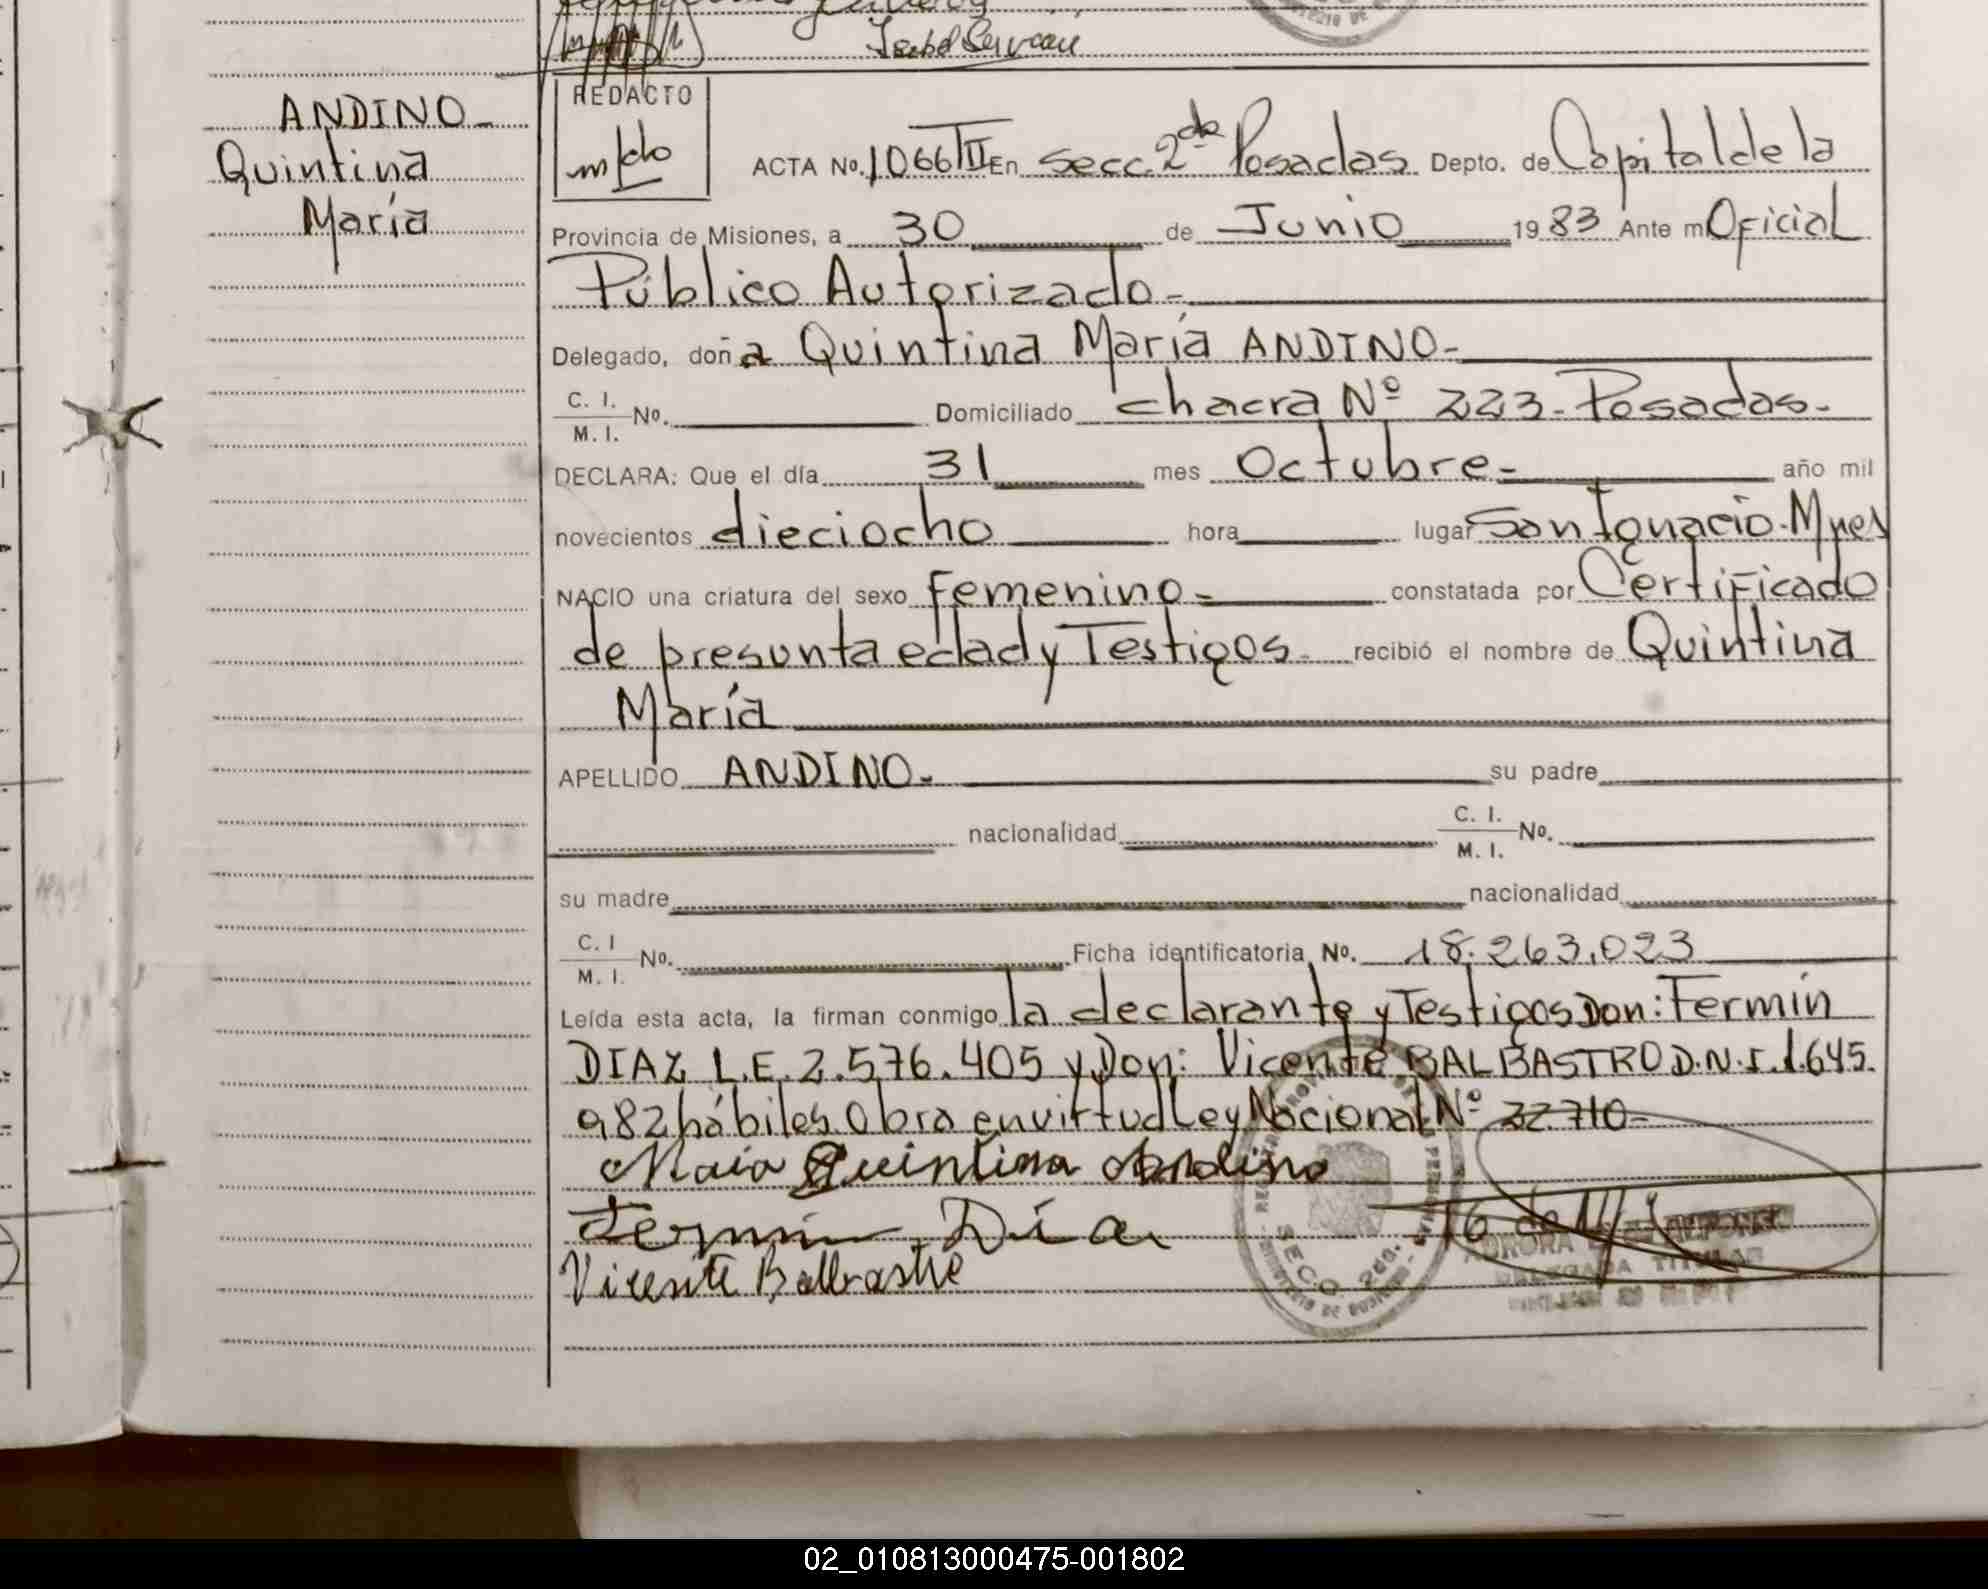 Isabel Servean
ANDINO
Quintina
María
REDACTO
ACTA No. 1066 TII En Secc. 2da Posadas Depto. de Capital de la
Provincia de Misiones, a 30 de Junio 1983 Ante mi Oficial
Público Autorizado-
Delegado, doña Quintina María ANDINO-
C. I.
M. I. No. Domiciliado chacra Nº 223-Posadas-
DECLARA: Que el día 31 mes Octubre- año mil
novecientos dieciocho hora lugar San Ignacio-Mnes
NACIO una criatura del sexo Femenino- constatada por Certificado
de presunta edad y Testigos- recibió el nombre de Quintina
María
APELLIDO ANDINO- su padre
nacionalidad C. I.
M. I. No.
su madre nacionalidad
C. I
M. I. No. Ficha identificatoria No. 18.263.023
Leída esta acta, la firman conmigo la declarante y Testigos Don: Fermín
DIAZ L.E. 2.576.405 y Don: Vicente BALBASTRO D.N.I. 1.645.
982 hábiles. Obra en virtud Ley Nacional Nº 22.710-
Maia Quintina Andino
Fermin Dia
Vicente Balbrastre
SECC 2da.
DELEGADA TITULAR
02_010813000475-001802